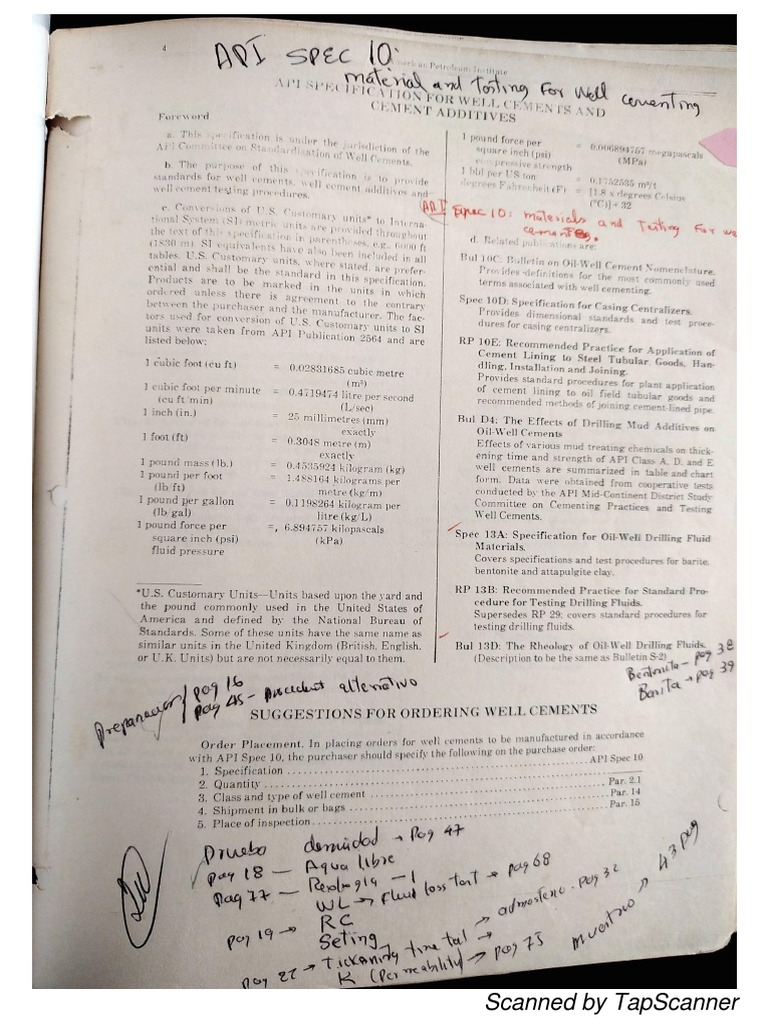 4
API SPEC 10:
American Petroleum Institute
material and testing For well cementing
API SPECIFICATION FOR WELL CEMENTS AND
CEMENT ADDITIVES
Foreword
a. This specification is under the jurisdiction of the
API Committee on Standardisation of Well Cements.
b. The purpose of this specification is to provide
standards for well cements, well cement additives and
well cement testing procedures.
c. Conversions of U.S. Customary units* to Interna-
tional System (SI) metric units are provided throughout
the text of this specification in parentheses, e.g., 6000 ft
(1830 m). SI equivalents have also been included in all
tables. U.S. Customary units, where stated, are prefer-
ential and shall be the standard in this specification.
Products are to be marked in the units in which
ordered unless there is agreement to the contrary
between the purchaser and the manufacturer. The fac-
tors used for conversion of U.S. Customary units to SI
units were taken from API Publication 2564 and are
listed below:
1 cubic foot (cu ft) = 0.02831685 cubic metre
(m³)
1 cubic foot per minute = 0.4719474 litre per second
(cu ft/min) (L/sec)
1 inch (in.) = 25 millimetres (mm)
exactly
1 foot (ft) = 0.3048 metre (m)
exactly
1 pound mass (lb.) = 0.4535924 kilogram (kg)
1 pound per foot = 1.488164 kilograms per
(lb/ft) metre (kg/m)
1 pound per gallon = 0.1198264 kilogram per
(lb/gal) litre (kg/L)
1 pound force per =, 6.894757 kilopascals
square inch (psi) (kPa)
fluid pressure
*U.S. Customary Units—Units based upon the yard and
the pound commonly used in the United States of
America and defined by the National Bureau of
Standards. Some of these units have the same name as
similar units in the United Kingdom (British, English,
or U.K. Units) but are not necessarily equal to them.
1 pound force per = 0.006894757 megapascals
square inch (psi) (MPa)
compressive strength
1 bbl per US ton = 0.1752535 m³/t
degrees Fahrenheit (F) = [1.8 x degrees Celsius
(°C)] + 32
API Spec 10: materials and Testing For we
cementing.
d. Related publications are:
Bul 10C: Bulletin on Oil-Well Cement Nomenclature.
Provides definitions for the most commonly used
terms associated with well cementing.
Spec 10D: Specification for Casing Centralizers.
Provides dimensional standards and test proce-
dures for casing centralizers.
RP 10E: Recommended Practice for Application of
Cement Lining to Steel Tubular Goods, Han-
dling, Installation and Joining.
Provides standard procedures for plant application
of cement lining to oil field tubular goods and
recommended methods of joining cement-lined pipe.
Bul D4: The Effects of Drilling Mud Additives on
Oil-Well Cements
Effects of various mud treating chemicals on thick-
ening time and strength of API Class A, D, and E
well cements are summarized in table and chart
form. Data were obtained from cooperative tests
conducted by the API Mid-Continent District Study
Committee on Cementing Practices and Testing
Well Cements.
Spec 13A: Specification for Oil-Well Drilling Fluid
Materials.
Covers specifications and test procedures for barite,
bentonite and attapulgite clay.
RP 13B: Recommended Practice for Standard Pro-
cedure for Testing Drilling Fluids.
Supersedes RP 29; covers standard procedures for
testing drilling fluids.
Bul 13D: The Rheology of Oil-Well Drilling Fluids.
(Description to be the same as Bulletin S-2)
Bentonita - pag 38
Barita → pag 39
Preparacion / pag 16
pag 45 - procedent alternativo
SUGGESTIONS FOR ORDERING WELL CEMENTS
Order Placement. In placing orders for well cements to be manufactured in accordance
with API Spec 10, the purchaser should specify the following on the purchase order:
1. Specification ........ API Spec 10
2. Quantity ........
3. Class and type of well cement ........ Par. 2.1
4. Shipment in bulk or bags ........ Par. 14
5. Place of inspection ........ Par. 15
Prueba densidad → Pag 47
pag 18 - Aqua libre
pag 77 - Reologia - 1
WL → Fluid loss test → pag 68
pag 19 → RC
Seting
pag 22 → Tickaning time tal → admosfera. pag 32
K (Permeability) → pag 75
muestreo → 43 pag
Scanned by TapScanner